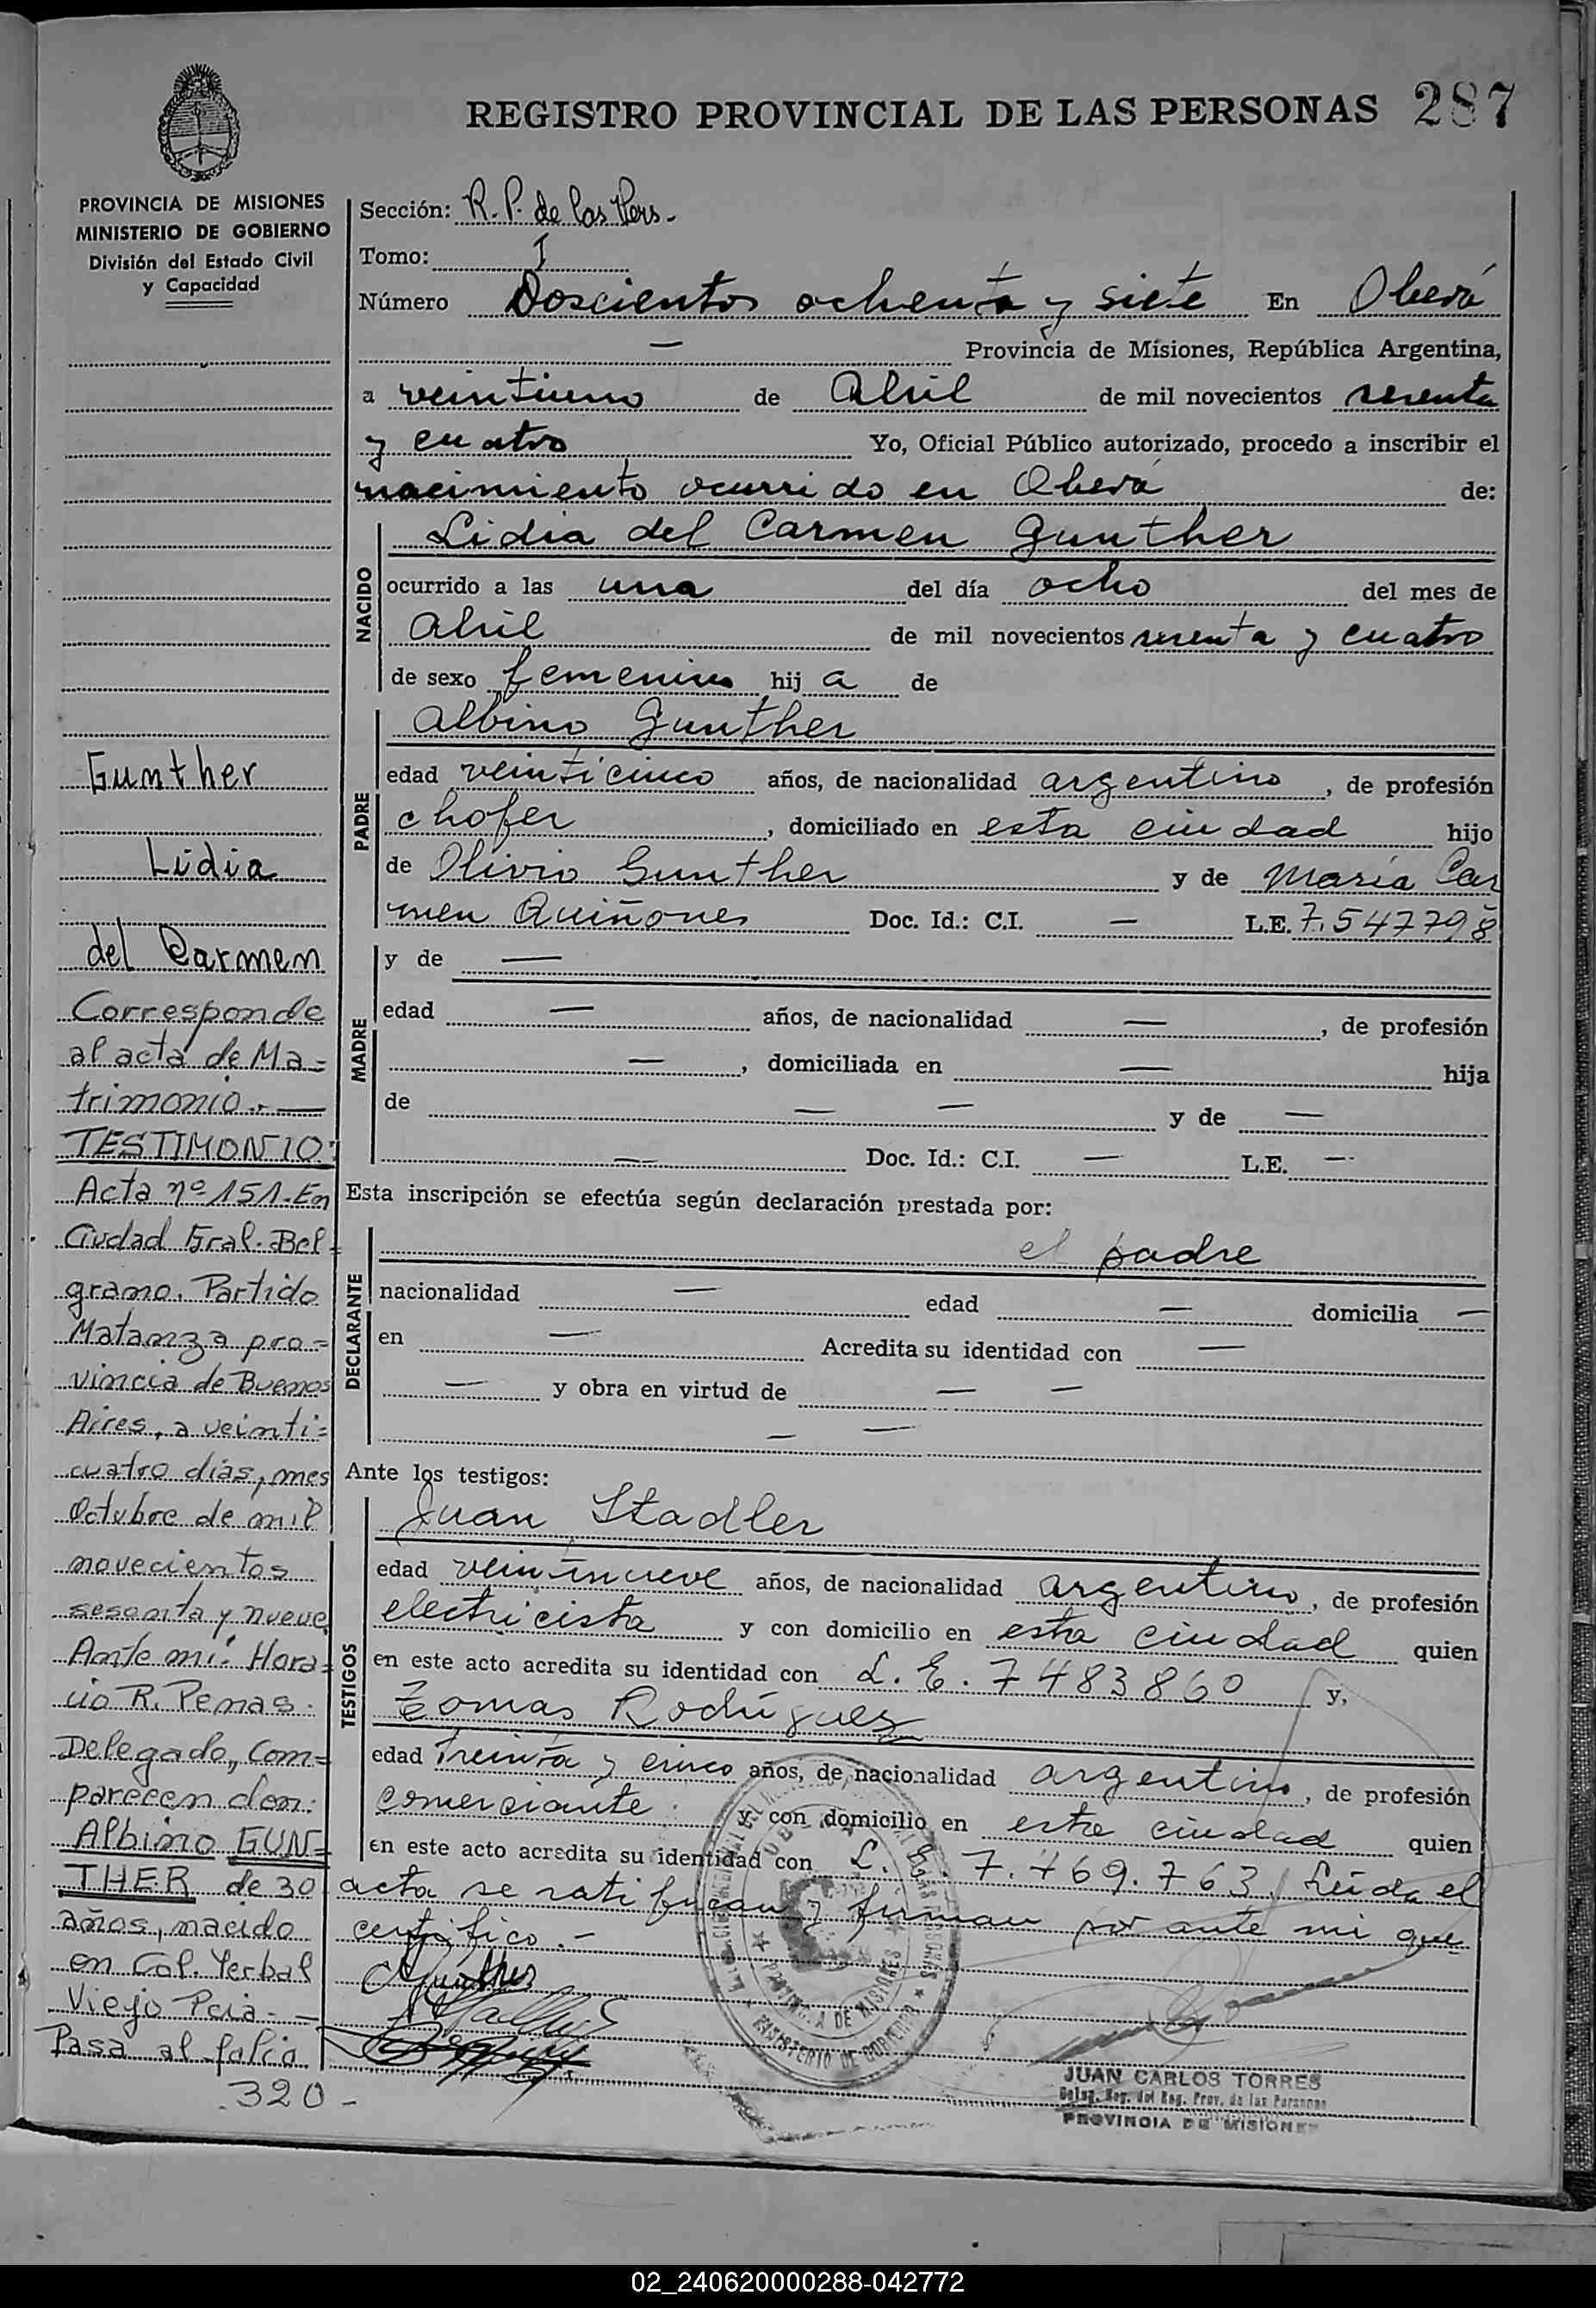 REGISTRO PROVINCIAL DE LAS PERSONAS 287
PROVINCIA DE MISIONES
MINISTERIO DE GOBIERNO
División del Estado Civil
y Capacidad
Gunther
Lidia
del Carmen
Corresponde
al acta de Ma=
trimonio.-
TESTIMONIO:
Acta nº 151.-En
Ciudad Gral. Bel=
grano. Partido
Matanza pro=
vincia de Buenos
Aires, a veinti=
cuatro días, mes
Octubre de mil
novecientos
sesenta y nueve.
Ante mi: Hora=
cio R. Penas.
Delegado, Com=
parecen don:
Albino GUN=
THER de 30
años, nacido
en Col. Yerbal
Viejo Pcia.-
Pasa al folio
320-
Sección: R.P. de las Pers.-
Tomo: I
Número Doscientos ochenta y siete En Oberá
— Provincia de Misiones, República Argentina,
a veintiuno de Abril de mil novecientos sesenta
y cuatro Yo, Oficial Público autorizado, procedo a inscribir el
nacimiento ocurrido en Oberá de:
NACIDO
Lidia del Carmen Gunther
ocurrido a las una del día ocho del mes de
Abril de mil novecientos sesenta y cuatro
de sexo femenino hija de
PADRE
Albino Gunther
edad veinticinco años, de nacionalidad argentino, de profesión
chofer, domiciliado en esta ciudad hijo
de Olivio Gunther y de María Car
men Quiñones Doc. Id.: C.I. — L.E. 7.547798
MADRE
y de —
edad — años, de nacionalidad —, de profesión
—, domiciliada en — hija
de — — y de —
— Doc. Id.: C.I. — L.E. —
Esta inscripción se efectúa según declaración prestada por:
DECLARANTE
el padre
nacionalidad — edad — domicilia —
en — Acredita su identidad con —
— y obra en virtud de — —
— —
Ante los testigos:
TESTIGOS
Juan Stadler
edad veintinueve años, de nacionalidad argentino, de profesión
electricista y con domicilio en esta ciudad quien
en este acto acredita su identidad con L.E. 7483860 y,
Tomas Rodríguez
edad treinta y cinco años, de nacionalidad argentino, de profesión
comerciante y con domicilio en esta ciudad quien
en este acto acredita su identidad con L.E. 7.469.763/ Leída el
acta se ratifican y firman por ante mi que
certifico.-
PROVINCIA DE MISIONES
MINISTERIO DE GOBIERNO
JUAN CARLOS TORRES
Deleg. Reg. del Reg. Prov. de las Personas
PROVINCIA DE MISIONES
02_240620000288-042772